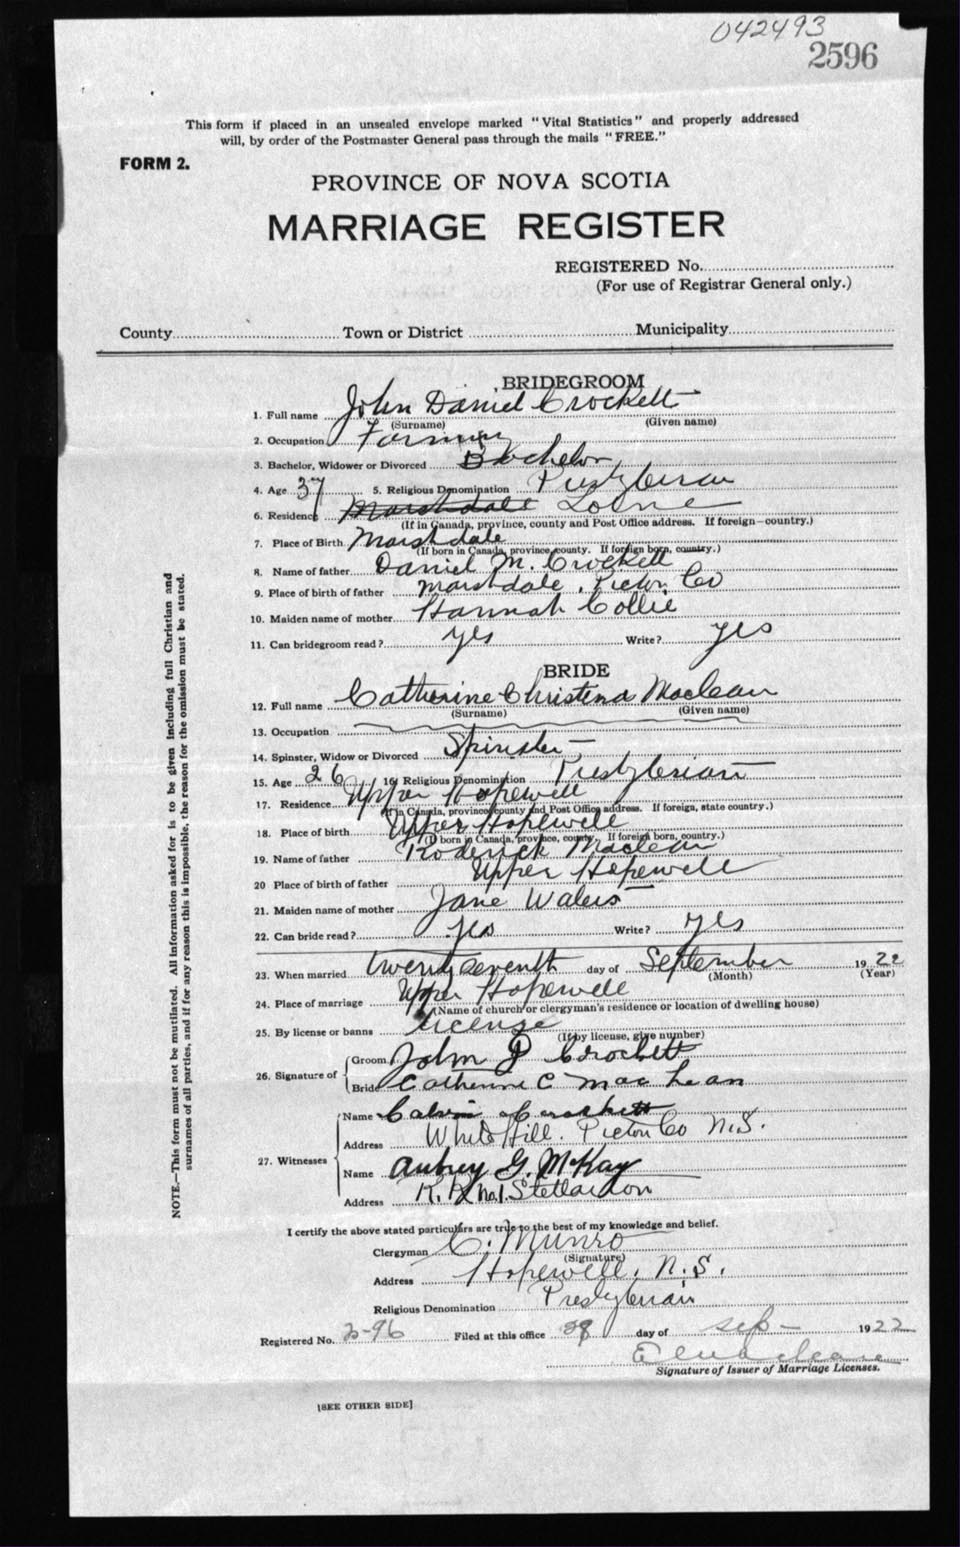 042493
2596
This form if placed in an unsealed envelope marked "Vital Statistics" and properly addressed
will, by order of the Postmaster General pass through the mails "FREE."
FORM 2.
PROVINCE OF NOVA SCOTIA
MARRIAGE REGISTER
REGISTERED No.
(For use of Registrar General only.)
County Town or District Municipality
BRIDEGROOM
1. Full name John Daniel Crockett
(Surname) (Given name)
2. Occupation
3. Bachelor, Widower or Divorced Bachelor
4. Age 37 5. Religious Denomination Presbyterian
6. Residence Marshdale Lorne
(If in Canada, province, county and Post Office address. If foreign—country.)
7. Place of Birth Marshdale
(If born in Canada, province, county. If foreign born, country.)
8. Name of father Daniel M. Crockett
9. Place of birth of father Marshdale, Pictou Co
10. Maiden name of mother Hannah Collie
11. Can bridegroom read? yes Write? yes
BRIDE
12. Full name Catherine Christena Maclean
(Surname) (Given name)
13. Occupation
14. Spinster, Widow or Divorced Spinster
15. Age 26 16 Religious Denomination Presbyterian
17. Residence Upper Hopewell
(If in Canada, province county and Post Office address. If foreign, state country.)
18. Place of birth Upper Hopewell
(If born in Canada, province, county. If foreign born, country.)
19. Name of father Roderick Maclean
20 Place of birth of father Upper Hopewell
21. Maiden name of mother Jane
22. Can bride read? yes Write? yes
23. When married twenty seventh day of September 1922
(Month) (Year)
24. Place of marriage Upper Hopewell
(Name of church or clergyman's residence or location of dwelling house)
25. By license or banns License
(If by license, give number)
26. Signature of
Groom John D Crockett
Bride Catherine C MacLean
27. Witnesses
Name Calvin Crockett
Address White Hill. Pictou Co N.S.
Name Aubrey G. McKay
Address R. R. No.1. Stellarton
I certify the above stated particulars are true to the best of my knowledge and belief.
Clergyman C. Munro
(Signature)
Address Hopewell, N.S.
Religious Denomination Presbyterian
Registered No. Filed at this office day of sep 1922
Signature of Issuer of Marriage Licenses.
[SEE OTHER SIDE]
NOTE.—This form must not be mutilated. All information asked for is to be given including full Christian and
surnames of all parties, and if for any reason this is impossible, the reason for the omission must be stated.